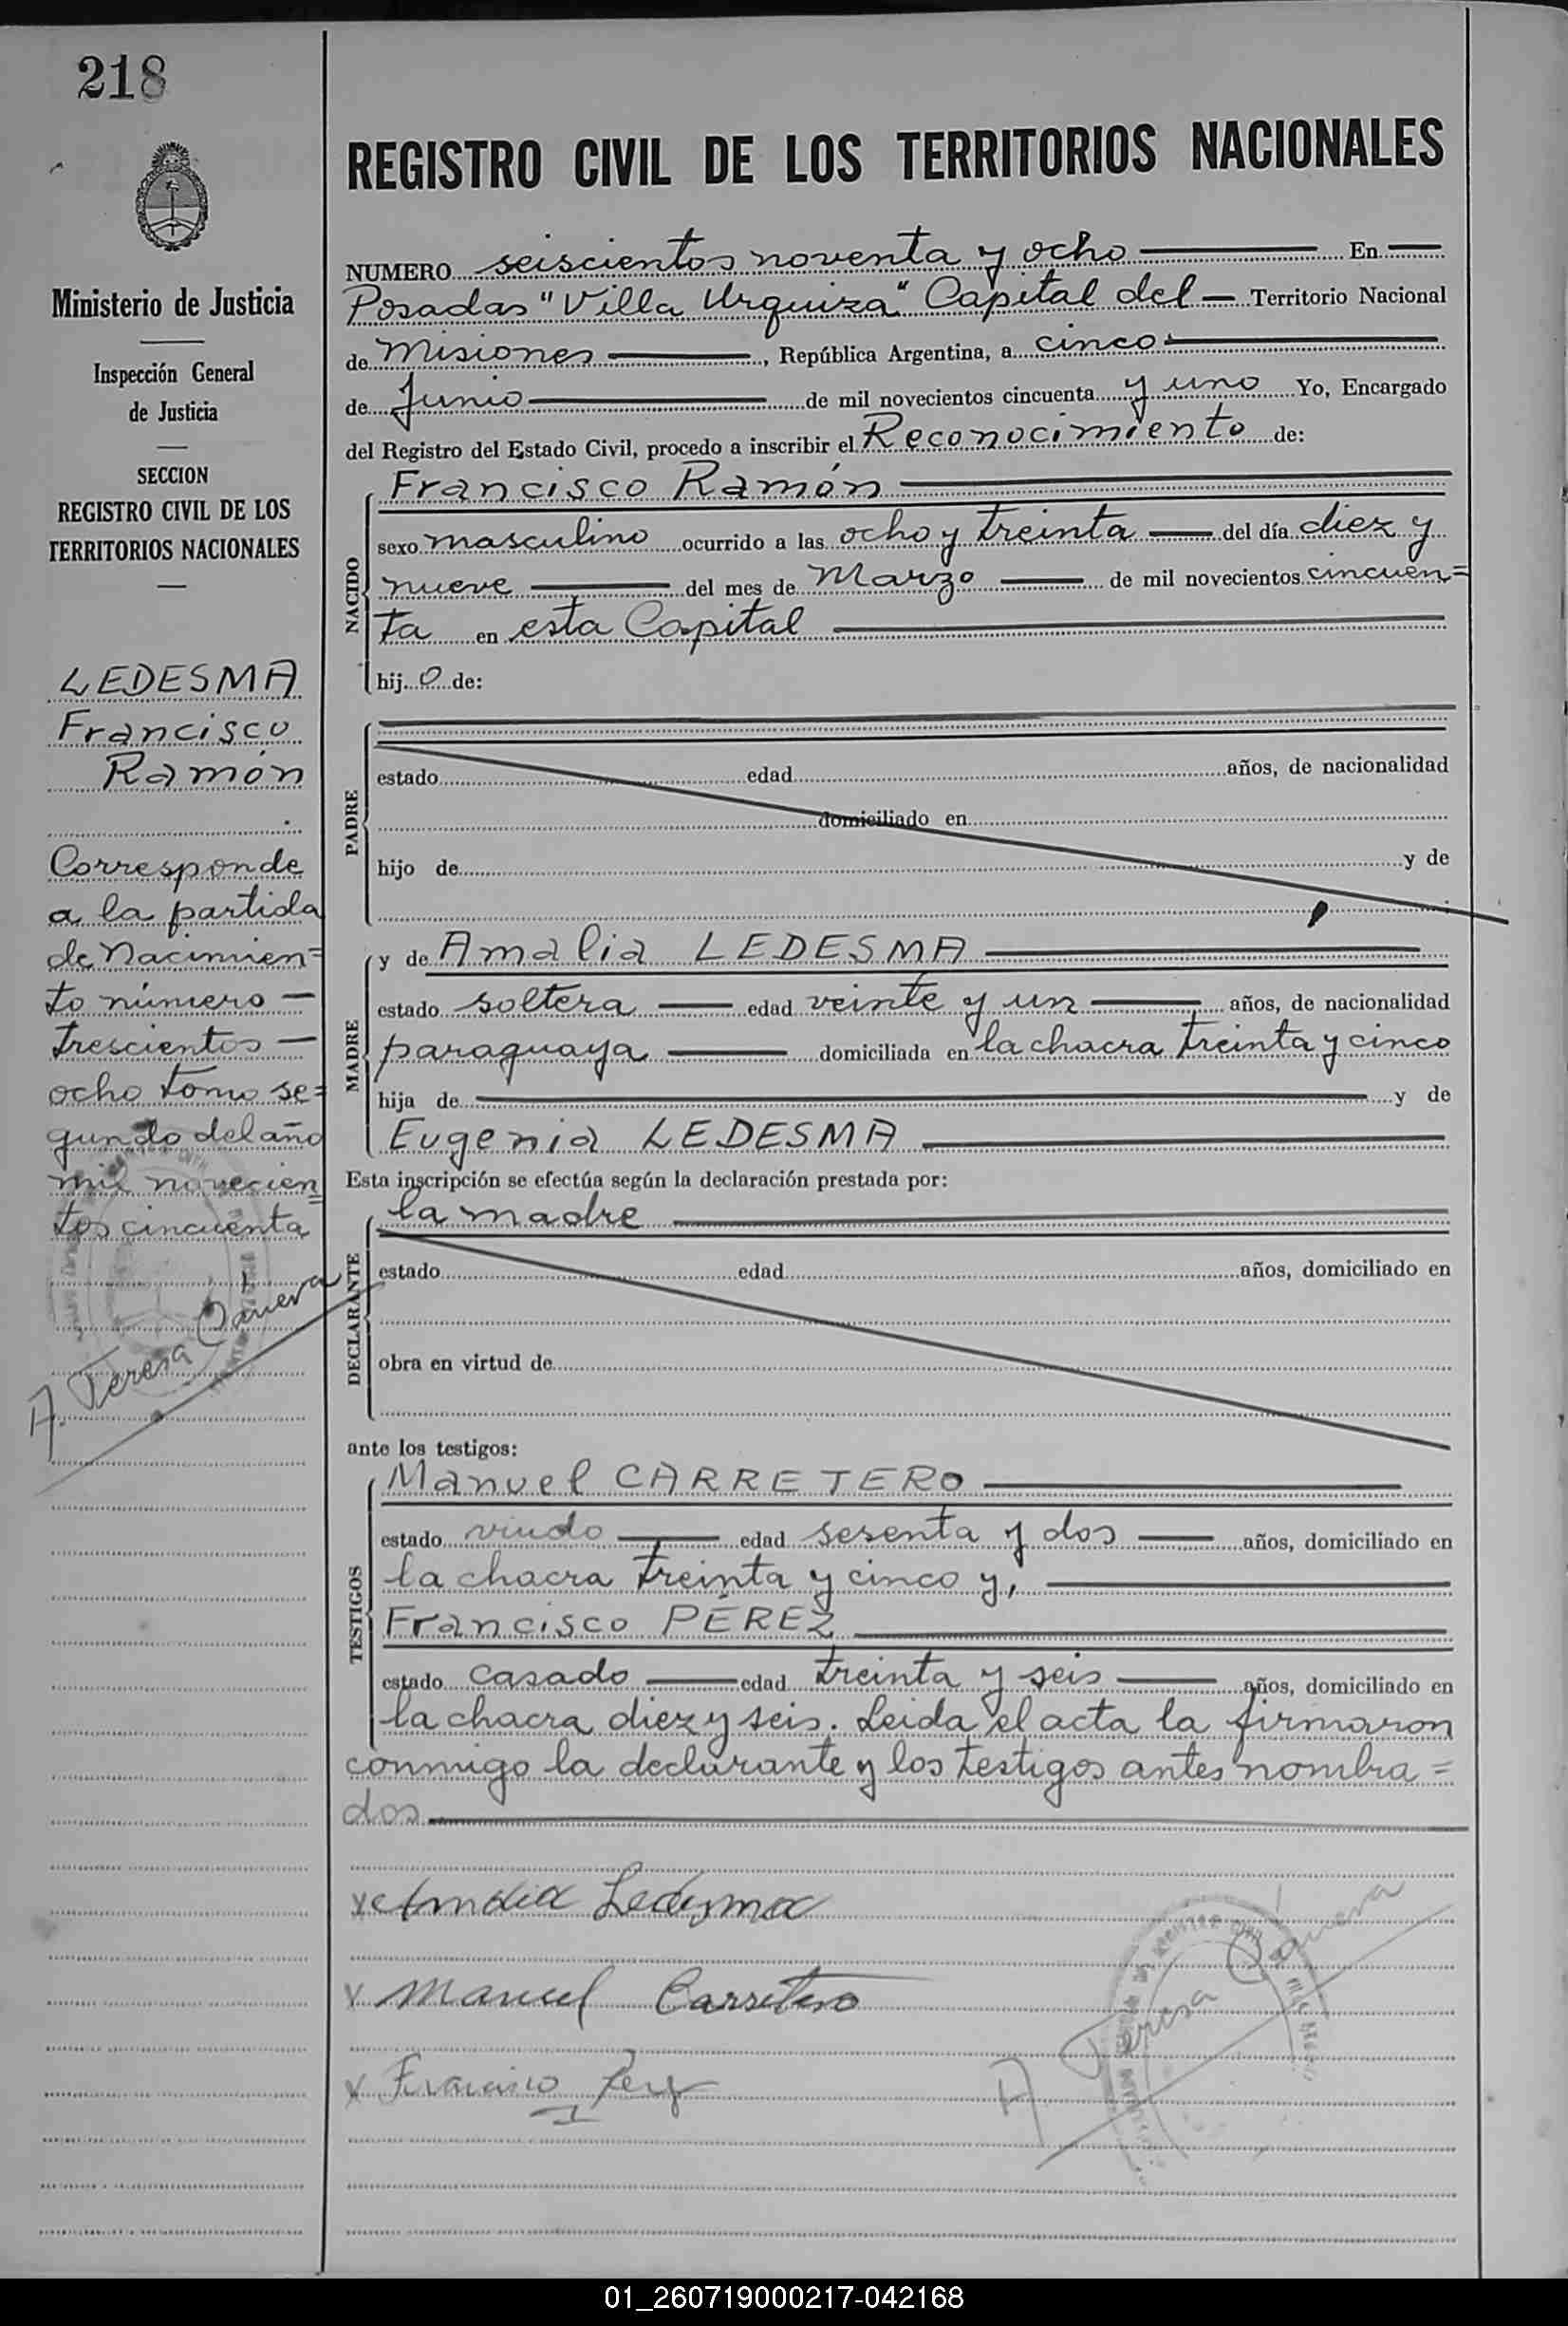 218
Ministerio de Justicia
Inspección General
de Justicia
SECCION
REGISTRO CIVIL DE LOS
TERRITORIOS NACIONALES
LEDESMA
Francisco
Ramón
Corresponde
a la partida
de Nacimien=
to número —
trescientos —
ocho tomo se=
gundo del año
mil novecien=
tos cincuenta
A. Teresa
REGISTRO CIVIL DE LOS TERRITORIOS NACIONALES
NUMERO seiscientos noventa y ocho — En —
Posadas "Villa Urquiza" Capital del — Territorio Nacional
de Misiones —, República Argentina, a cinco —
de Junio — de mil novecientos cincuenta y uno Yo, Encargado
del Registro del Estado Civil, procedo a inscribir el Reconocimiento de:
NACIDO
Francisco Ramón —
sexo masculino ocurrido a las ocho y treinta — del día diez y
nueve — del mes de Marzo — de mil novecientos cincuen=
ta en esta Capital —
hij o de:
PADRE
estado edad años, de nacionalidad
domiciliado en
hijo de y de
MADRE
y de Amalia LEDESMA —
estado soltera — edad veinte y un — años, de nacionalidad
paraguaya — domiciliada en la chacra treinta y cinco
hija de — y de
Eugenia LEDESMA —
Esta inscripción se efectúa según la declaración prestada por:
DECLARANTE
la madre —
estado edad años, domiciliado en
obra en virtud de
ante los testigos:
TESTIGOS
Manuel CARRETERO —
estado viudo — edad sesenta y dos — años, domiciliado en
la chacra treinta y cinco y, —
Francisco PÉREZ —
estado casado — edad treinta y seis — años, domiciliado en
la chacra diez y seis. Leida el acta la firmaron
conmigo la declarante y los testigos antes nombra=
dos —
x Amalia Ledesma
x Manuel Carretero
x Francisco Perez
A Teresa
01_260719000217-042168